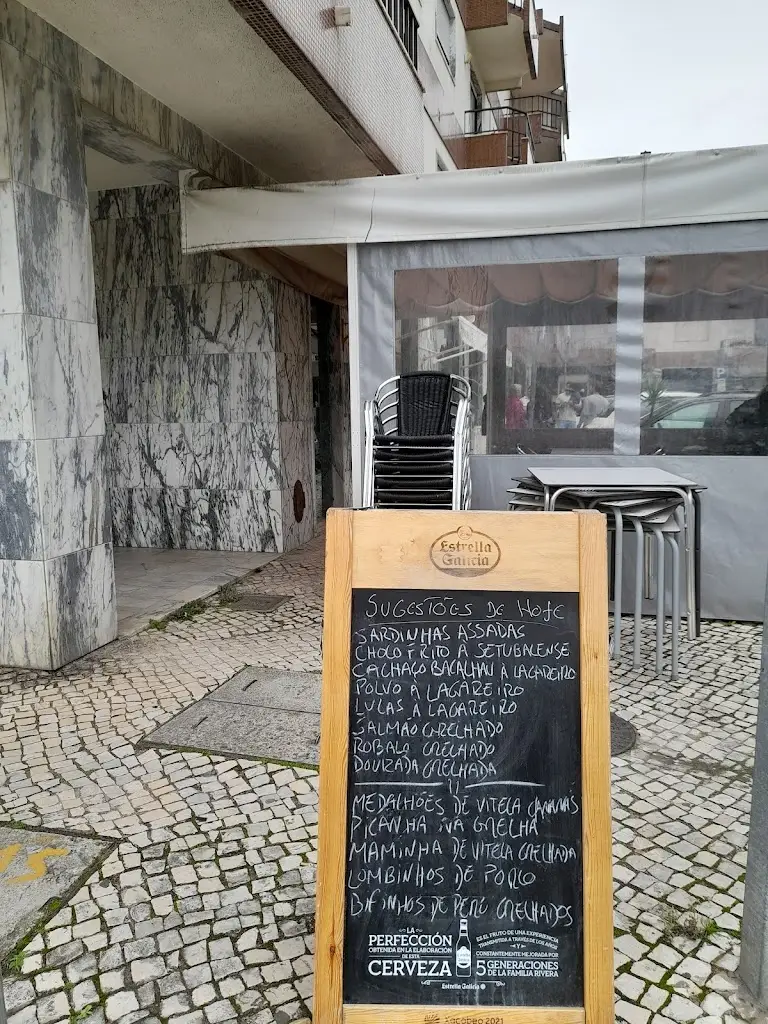 Estrella
Galicia
SUGESTÕES DE HOJE
SARDINHAS ASSADAS
CHOCO FRITO À SETUBALENSE
CACHAÇO BACALHAU À LAGAREIRO
POLVO À LAGAREIRO
LULAS À LAGAREIRO
SALMÃO GRELHADO
ROBALO GRELHADO
DOURADA GRELHADA
MEDALHÕES DE VITELA
PICANHA NA GRELHA
MAMINHA DE VITELA GRELHADA
LOMBINHOS DE PORCO
BIFINHOS DE PERÚ GRELHADOS
LA
PERFECCIÓN
OBTENIDA EN LA ELABORACIÓN
DE ESTA
CERVEZA
ES EL FRUTO DE UNA EXPERIENCIA
TRANSMITIDA A TRAVÉS DE LOS AÑOS
Y
CONSTANTEMENTE MEJORADA POR
5 GENERACIONES
DE LA FAMILIA RIVERA
Estrella Galicia
Xacobeo 2021